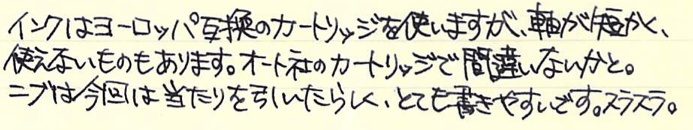 インクはヨーロッパ互換のカートリッジを使いますが、軸が短かく、
使えないものもあります。オート社のカートリッジで間違いないかと。
ニブは今回は当たりを引いたらしく、とても書きやすいです。スラスラ。